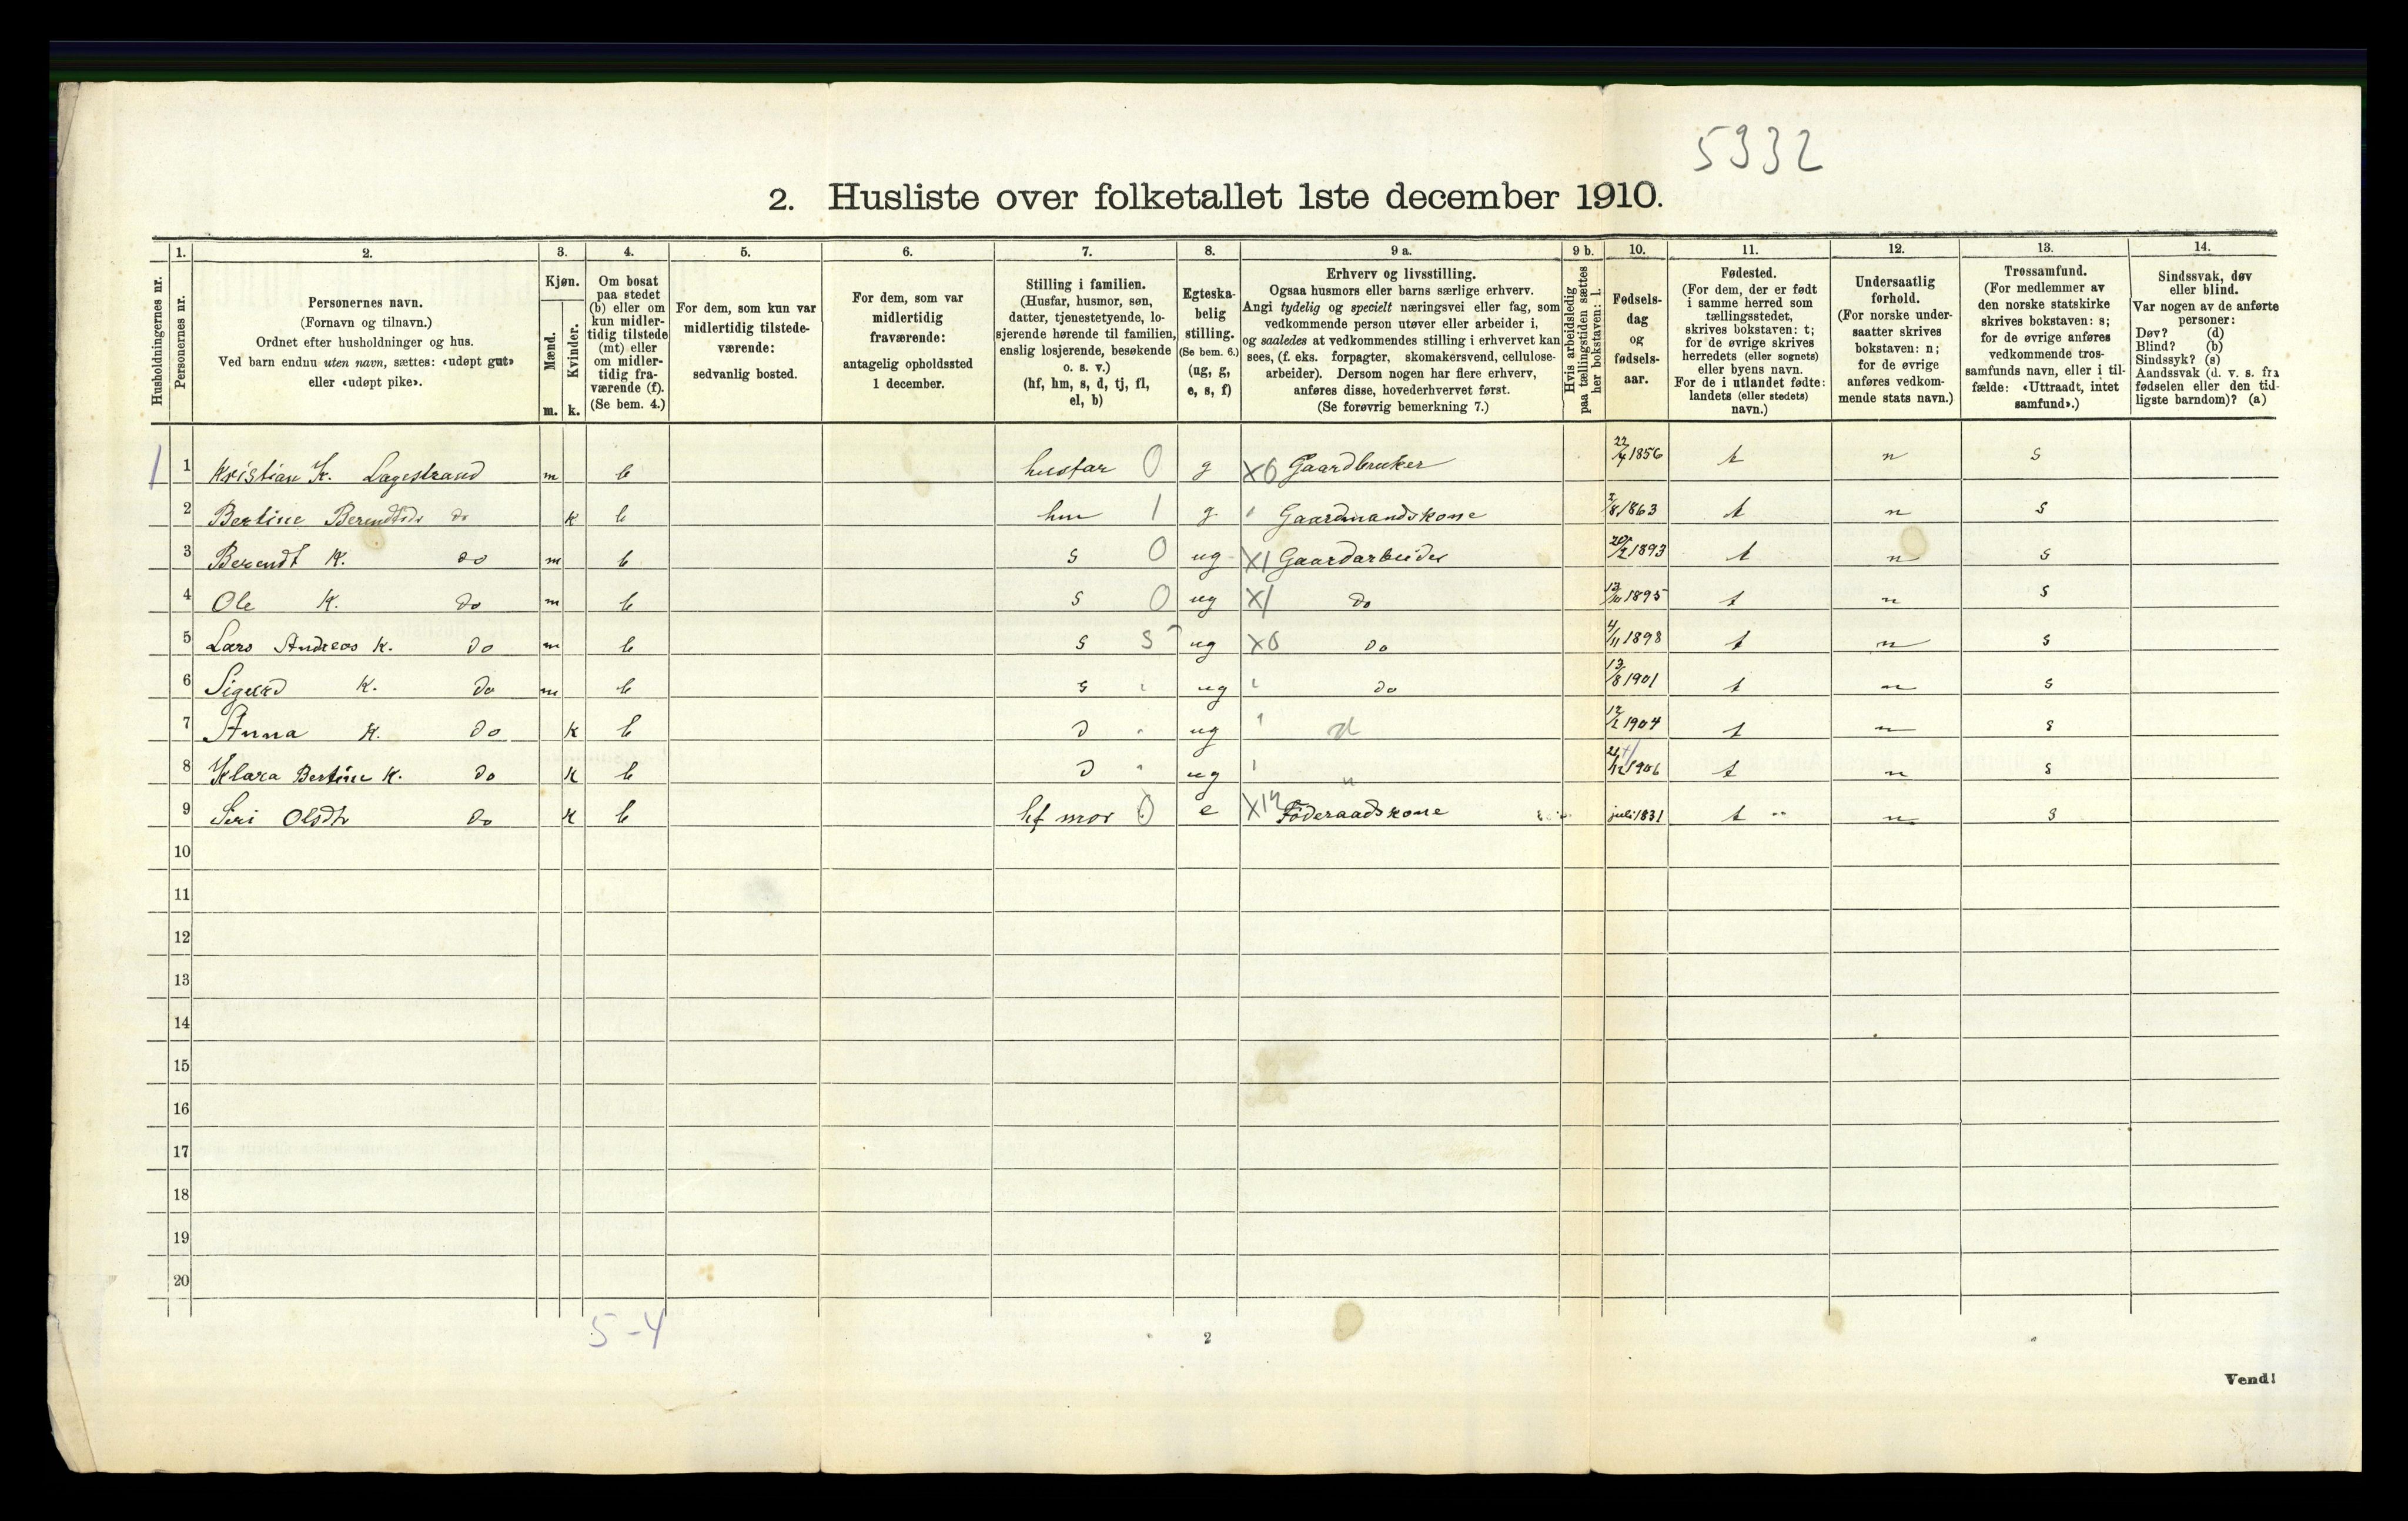 5932
2. Husliste over folketallet 1ste december 1910.
Husholdningernes nr.
1.
Personernes nr.
2.
Personernes navn.
(Fornavn og tilnavn.)
Ordnet efter husholdninger og hus.
Ved barn endnu uten navn, sættes: «udøpt gut»
eller «udøpt pike».
3.
Kjøn.
Mænd.
m.
Kvinder.
k.
4.
Om bosat
paa stedet
(b) eller om
kun midler-
tidig tilstede
(mt) eller
om midler-
tidig fra-
værende (f).
(Se bem. 4.)
5.
For dem, som kun var
midlertidig tilstede-
værende:
sedvanlig bosted.
6.
For dem, som var
midlertidig
fraværende:
antagelig opholdssted
1 december.
7.
Stilling i familien.
(Husfar, husmor, søn,
datter, tjenestetyende, lo-
sjerende hørende til familien,
enslig losjerende, besøkende
o. s. v.)
(hf, hm, s, d, tj, fl,
el, b)
8.
Egteska-
belig
stilling.
(Se bem. 6.)
(ug, g,
e, s, f)
9 a.
Erhverv og livsstilling.
Ogsaa husmors eller barns særlige erhverv.
Angi tydelig og specielt næringsvei eller fag, som
vedkommende person utøver eller arbeider i,
og saaledes at vedkommendes stilling i erhvervet kan
sees, (f. eks. forpagter, skomakersvend, cellulose-
arbeider). Dersom nogen har flere erhverv,
anføres disse, hovederhvervet først.
(Se forøvrig bemerkning 7.)
9 b.
Hvis arbeidsledig
paa tællingstiden sættes
her bokstaven: l.
10.
Fødsels-
dag
og
fødsels-
aar.
11.
Fødested.
(For dem, der er født
i samme herred som
tællingsstedet,
skrives bokstaven: t;
for de øvrige skrives
herredets (eller sognets)
eller byens navn.
For de i utlandet fødte:
landets (eller stedets)
navn.)
12.
Undersaatlig
forhold.
(For norske under-
saatter skrives
bokstaven: n;
for de øvrige
anføres vedkom-
mende stats navn.)
13.
Trossamfund.
(For medlemmer av
den norske statskirke
skrives bokstaven: s;
for de øvrige anføres
vedkommende tros-
samfunds navn, eller i til-
fælde: «Uttraadt, intet
samfund».)
14.
Sindssvak, døv
eller blind.
Var nogen av de anførte
personer:
Døv? (d)
Blind? (b)
Sindssyk? (s)
Aandssvak (d. v. s. fra
fødselen eller den tid-
ligste barndom)? (a)
1 1 Kristian K. Lagestrand m b husfar 0 g X6 Gaardbruker 22/4 1856 t n s
2 Bertine Berendtsdr do k b hm 1 g Gaardmandskone 2/8 1863 t n s
3 Berendt K. do m b s 0 ug X1 Gaardarbeider 20/2 1893 t n s
4 Ole K. do m b s 0 ug X1 do 1895 t n s
5 Lars Andreas K. do m b s ug X6 do 4/11 1898 t n s
6 Sigurd K. do m b s ug do 13/8 1901 t n s
7 Anna K. do k b d ug d 12/2 1904 t n s
8 Klara Bertine K. do k b d ug " 1906 t n s
9 Siri Olsdtr do k b hf mor 0 e Føderaadskone juli 1831 t n s
10
11
12
13
14
15
16
17
18
19
20
5-4
2
Vend!